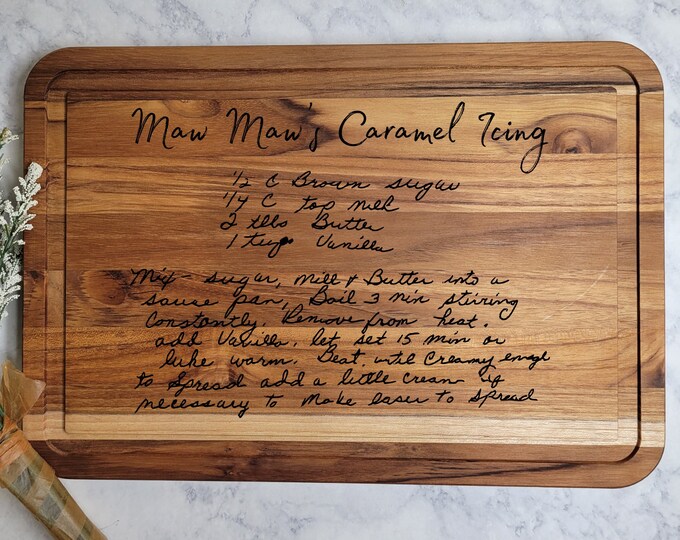 Maw Maw's Caramel Icing
1/2 C Brown sugar
1/4 C top milk
2 tlbs Butter
1 tsp Vanilla
Mix - sugar, Milk & Butter into a
sauce pan, Boil 3 min stiring
Constantly. Remove from heat.
add Vanilla, let set 15 min or
luke warm. Beat until Creamy enough
to Spread add a little cream if
necessary to Make easer to Spread